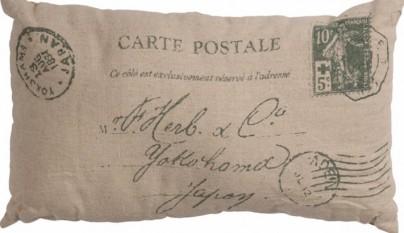 CARTE POSTALE
Ce côté est exclusivement réservé à l'adresse
10c
+5c
YOKOHAMA
JAPAN
Mr. F. Herb. & Co
Yokohama
Japan